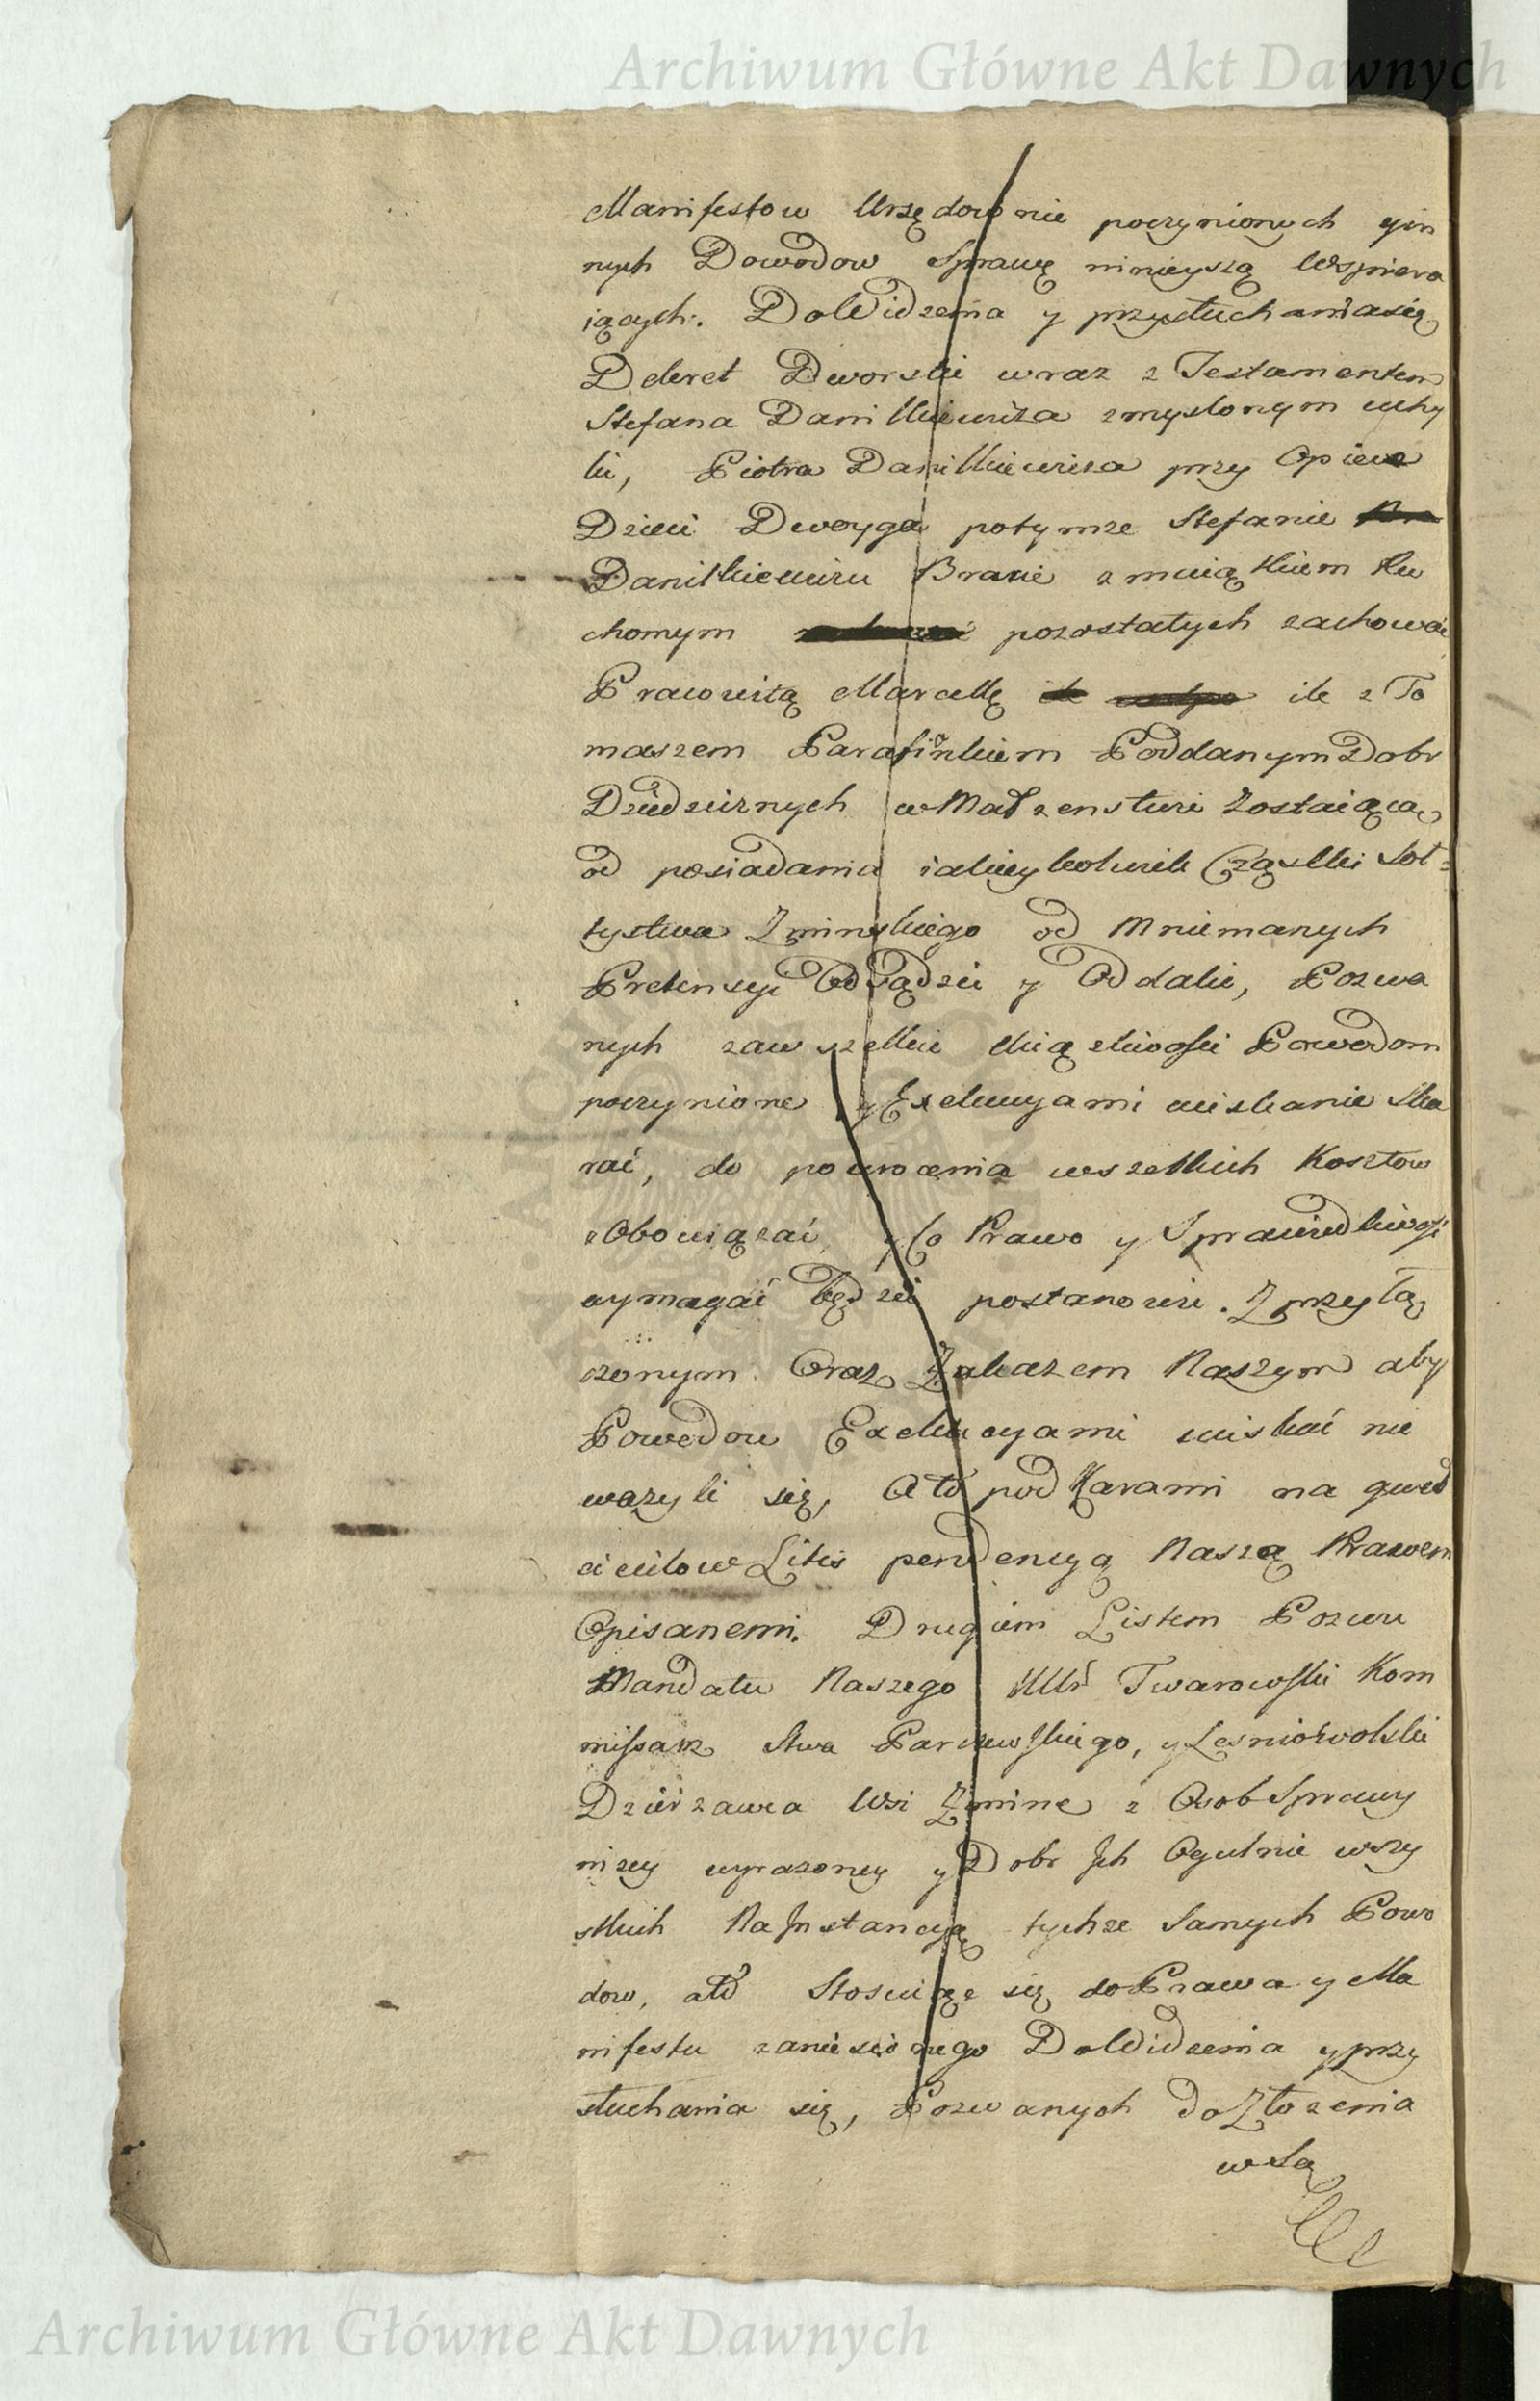 Archiwum Główne Akt Dawnych
Manifestow Urzędownie poczynionych yin
nych Dowodow Sprawę ninieyszą Wspiera
iących. DoWidzenia y przysłuchaniasię
Dekret Dworski wraz z Testamentem
Stefana Danilkiewicza zmyslonym uchy
lić, Piotra Danilkiewicza przy Opiece
Dzieci Dwoyga potymze Stefanie
Danilkiewiczu Bracie zmaiątkiem Ru
chomym pozostałych zachować
Prawowitą Marcellę ile z To
maszem Parafinkiem Poddanym Dobr
Dziedzicznych wMałzenstwie Zostaiącą
od posiadania iakieykolwiek Cząstki Soł
tystwa Zminskiego od Mniemanych
Pretensyi Odsądzić y Oddalić, Pozwa
nych zawszelkie Uciązliwości Powodom
poczynione yExekucyami uciskanie Ska
rać, do powrocenia wszelkich Kosztow
zObowiązać, yCo Prawo y Sprawiedliwość
wymagać będzie postanowić. Zprzyłą
czonym Oraz Zakazem Naszym aby
Powodow Exekucyami uciskać nie
wazyli się, Ato pod Karami na gwał
cicielow Litis pendencyą Naszą Prawem
Opisanemi. Drugiem Listem Pozwu
Mandatu Naszego Ur Twarowski Kom
missarz Stwa Parczewskiego, yLesniowolski
Dzierzawca Wsi Zmine z Osob Sprawy
nizey wyrazoney y Dobr Jch Ogulnie wszy
stkich NaJnstancyą tychze Samych Powo
dow, ato Stosuiąc się doPrawa y Ma
nifestu zaniesionego DoWidzenia yprzy
słuchania się, Pozwanych doZłozenia
wSą
Archiwum Główne Akt Dawnych